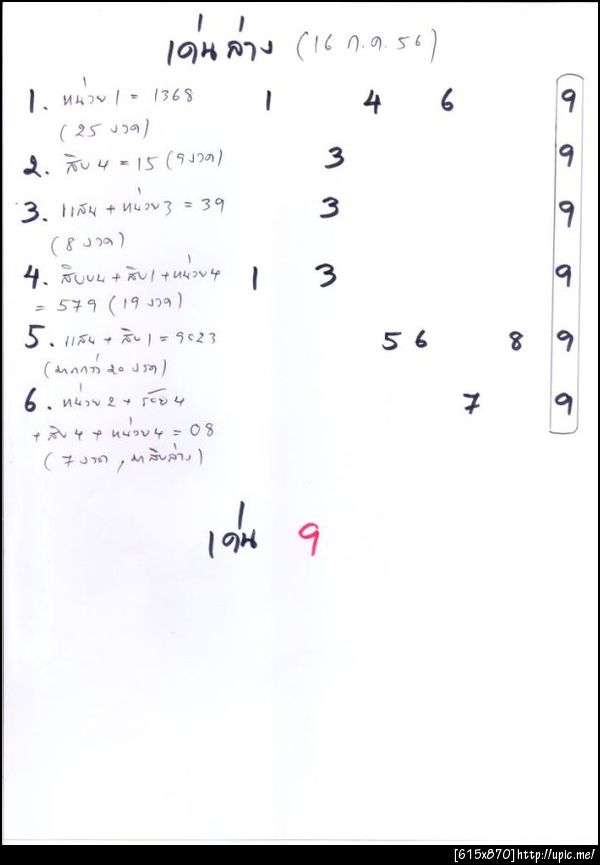 เด่นล่าง (16 ก.ค. 56)
1. หน่วย 1 = 1368 1 4 6 9
(25 งวด)
2. สิบ 4 = 15 (9 งวด) 3 9
3. แสน + หน่วย 3 = 39 3 9
(8 งวด)
4. สิบบน 4 + สิบ 1 + หน่วย 4 1 3 9
= 579 (19 งวด)
5. แสน + สิบ 1 = 9023 5 6 8 9
(มากกว่า 20 งวด)
6. หน่วย 2 + ร้อย 4 7 9
+ สิบ 4 + หน่วย 4 = 08
(7 งวด, มาสิบล่าง)
เด่น 9
[615x870]http://upic.me/